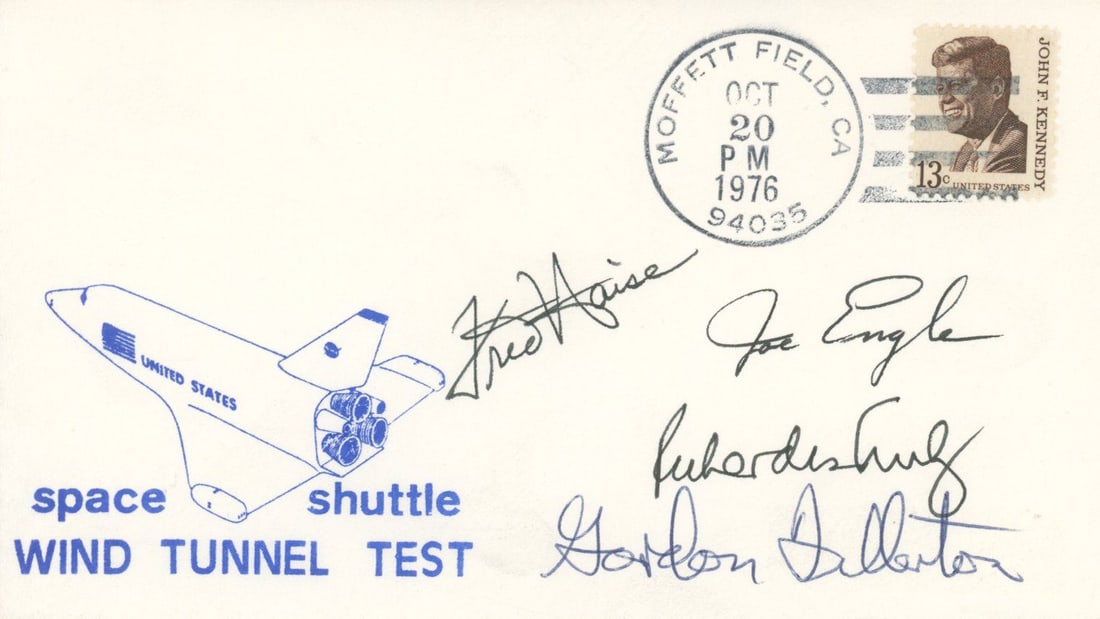 MOFFETT FIELD, CA
OCT
20
PM
1976
94035
JOHN F. KENNEDY
13c UNITED STATES
Fred Haise
Joe Engle
UNITED STATES
Gordon Fullerton
space shuttle
WIND TUNNEL TEST